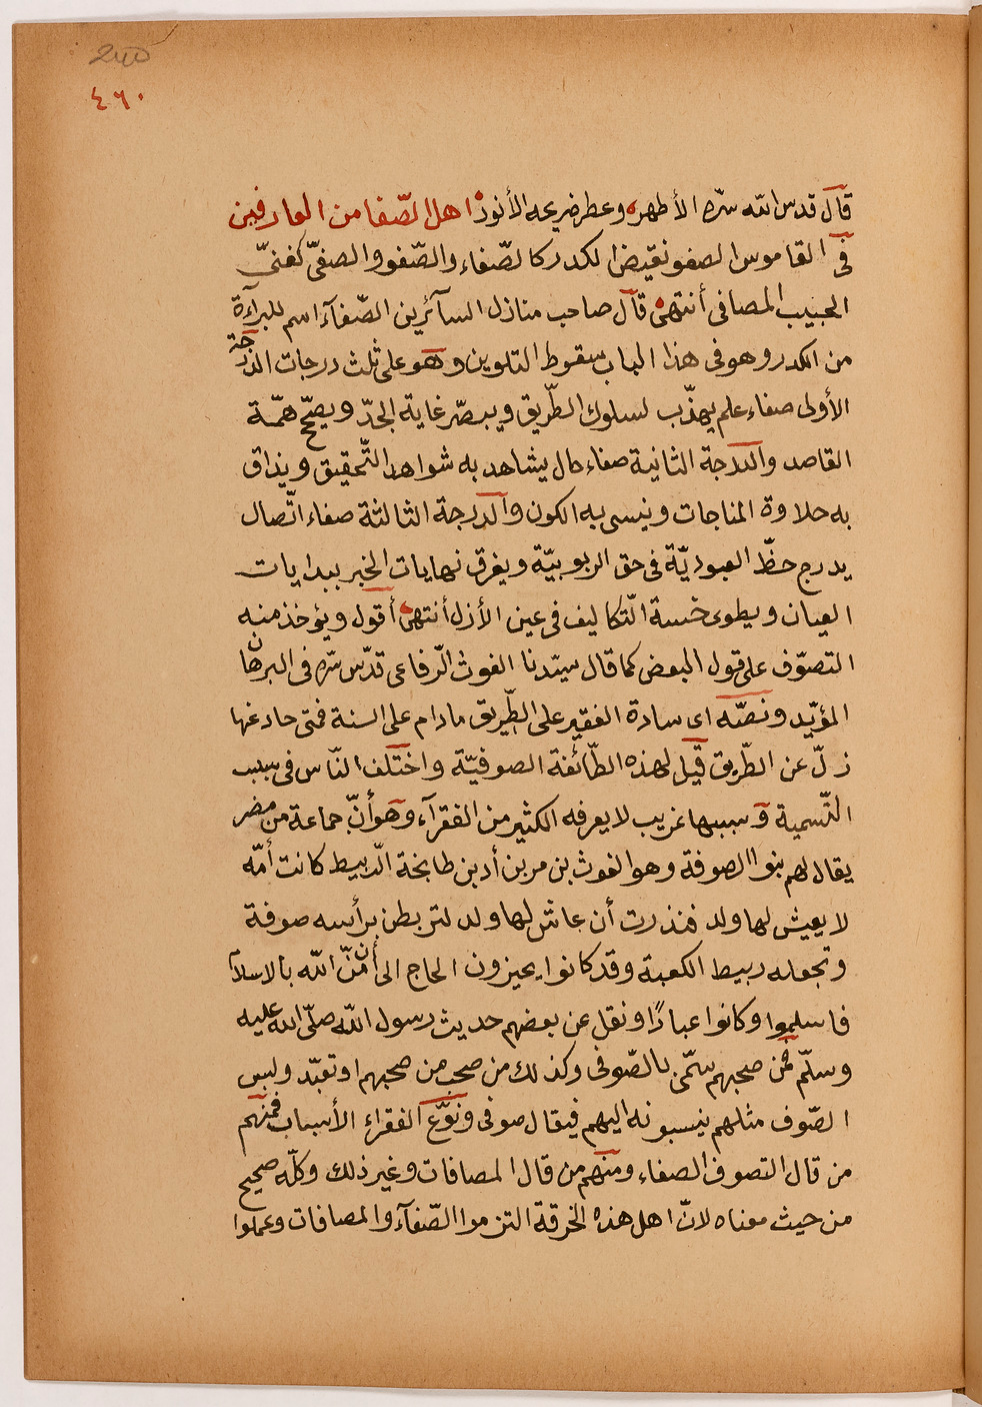 ٤٦٠
قال قدس الله سرّه الأطهر وعطر ضريحه الأنور اهل الصّفا من العارفين
فى القاموس الصفو نقيض الكدر كالصّفاء والصّفو والصفىّ كغنىّ
الحبيب المصافى أنتهى قال صاحب منازل السآئرين الصّفآء اسم للبراءة
من الكدر وهو فى هذا الباب سقوط التلوين وهو على ثلث درجات الدّرجة
الأولى صفاء علم يهذّب لسلوك الطّريق ويبصّر غاية الجدّ ويصحّح همّة
القاصد والدرجة الثانية صفاء حال يشاهد به شواهد التّحقيق ويذاق
به حلاوة المناجات وينسى به الكون والدرجة الثالثة صفاء اتّصال
يدرج حظّ العبوديّة فى حق الربوبيّة ويغرق نهايات الخبر ببدايات
العيان ويطوى خسة التّكاليف فى عين الأزل أنتهى أقول ويؤخذ منه
التصوّف على قول البعض كما قال سيّدنا الغوث الرّفاعى قدّس سّره فى البرهان
المؤيّد ونصّه اى سادة الفقير على الطّريق مادام على السنة فمتى حاد عنها
زلّ عن الطّريق قيل لهذه الطّائفة الصوفيّة واختلف النّاس فى سبب
التّسمية وسببها غريب لا يعرفه الكثير من الفقرآء وهو أنّ جماعة من مضر
يقال لهم بنوا الصوفة وهو الغوث بن مر بن أد بن طابخة الرّبيط كانت أمّه
لا يعيش لها ولد فنذرت أن عاش لها ولد لتربطن برأسه صوفة
وتجعله ربيط الكعبة وقد كانوا يحيزون الحاج الى أن منّ الله بالاسلام
فاسلموا وكانوا عبادًا ونقل عن بعضهم حديث رسول الله صلّى الله عليه
وسلّم فمن صحبهم سّمى بالصّوفى وكذلك من صحب من صحبهم او تعبّد ولبس
الصّوف مثلهم ينسبونه اليهم فيقال صوفى ونوّع الفقراء الأسباب فمنهم
من قال التصوف الصفاء ومنهم من قال المصافات وغير ذلك وكلّه صحيح
من حيث معناه لانّ اهل هذه الخرقة التزموا الصّفآء والمصافات وعملوا